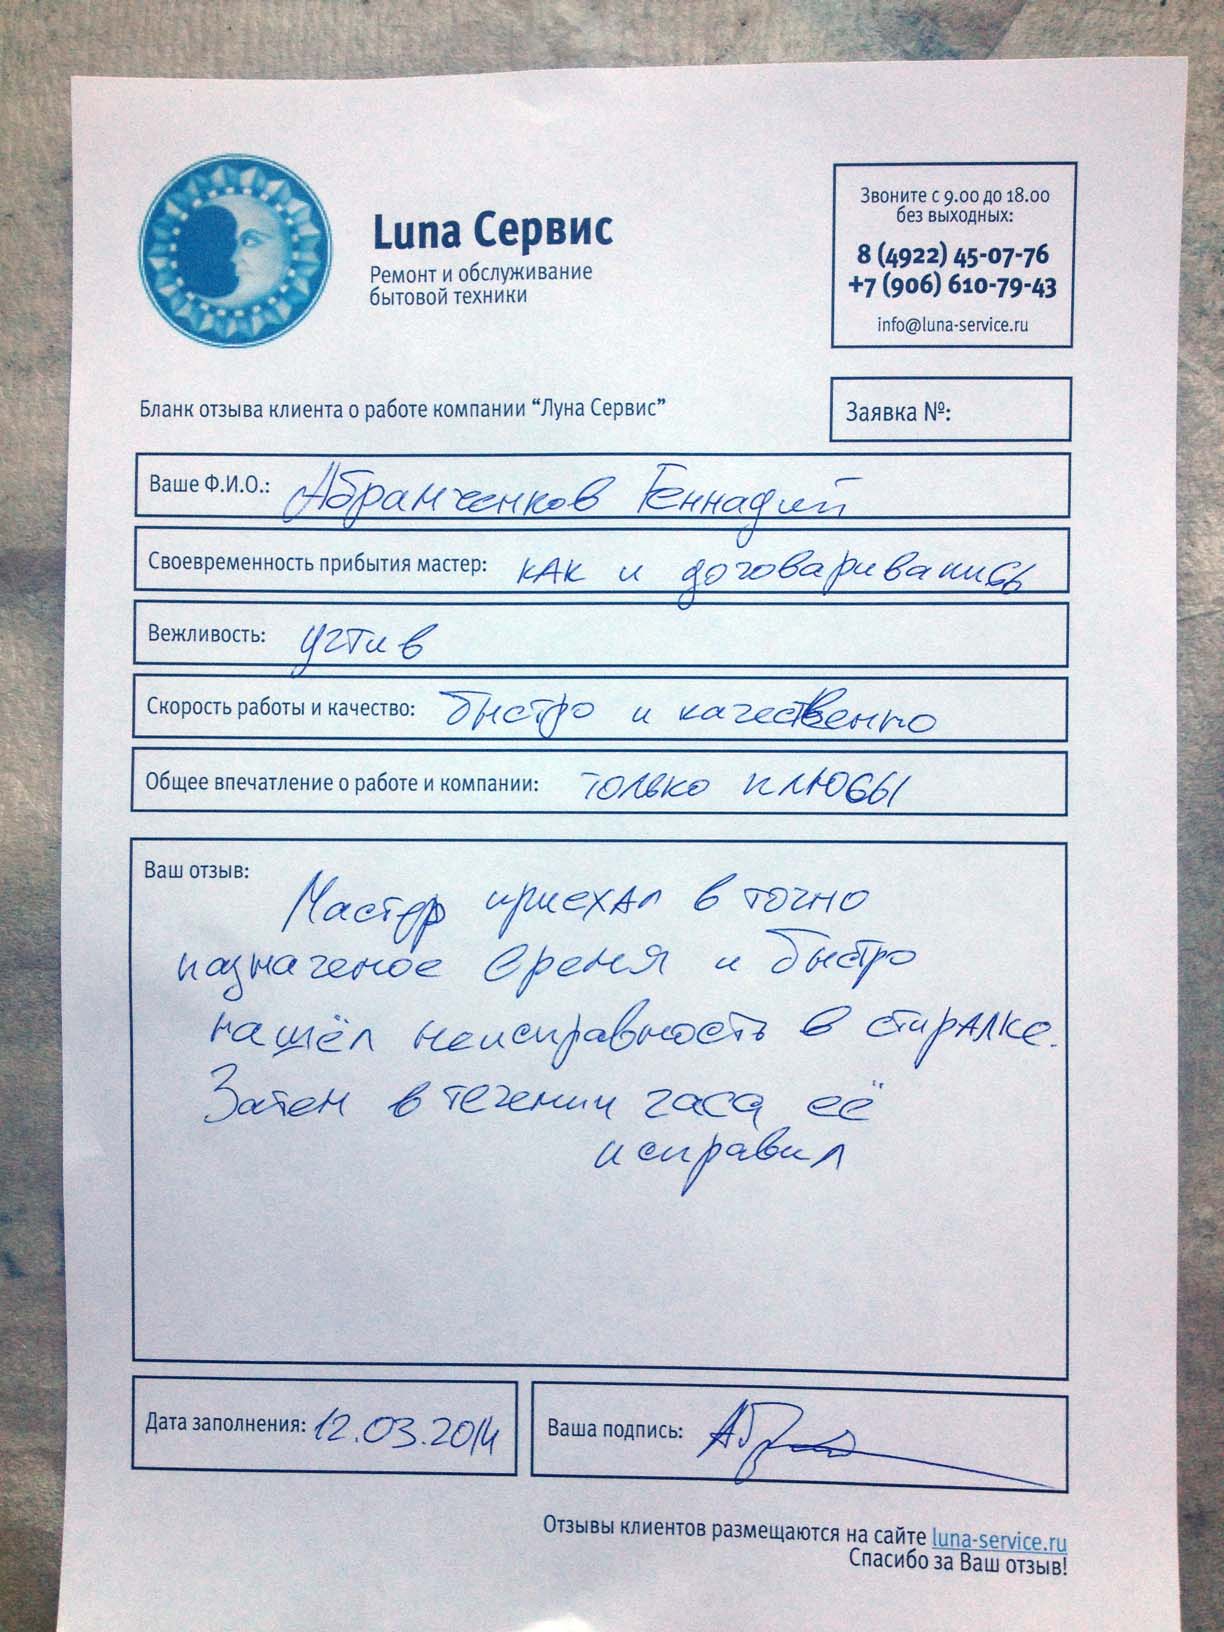 Luna Сервис
Ремонт и обслуживание
бытовой техники
Звоните с 9.00 до 18.00
без выходных:
8 (4922) 45-07-76
+7 (906) 610-79-43
info@luna-service.ru
Бланк отзыва клиента о работе компании “Луна Сервис”
Заявка №:
Ваше Ф.И.О.: Абрамченков Геннадий
Своевременность прибытия мастер: как и договаривались
Вежливость: учтив
Скорость работы и качество: быстро и качественно
Общее впечатление о работе и компании: только плюсы
Ваш отзыв:
Мастер приехал в точно
назначеное время и быстро
нашёл неисправность в стиралке.
Затем в течении часа её
исправил
Дата заполнения: 12.03.2014
Ваша подпись:
Отзывы клиентов размещаются на сайте luna-service.ru
Спасибо за Ваш отзыв!